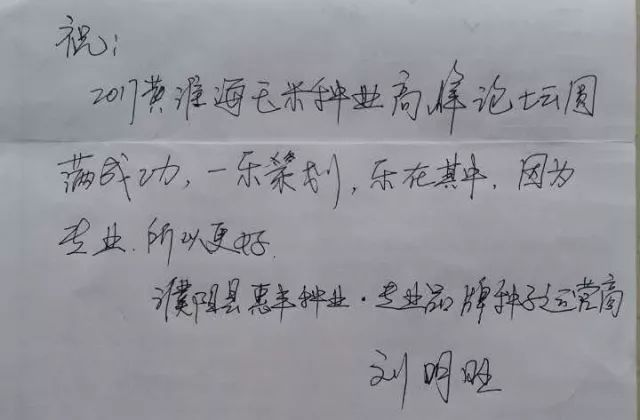 祝:
2017黄淮海玉米种业高峰论坛圆
满成功,一乐策划,乐在其中,因为
专业.所以更好.
濮阳县惠丰种业·专业品牌种子运营商
刘明旺